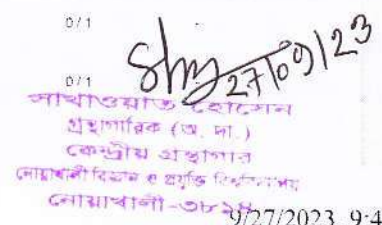 0/1
27/09/23
0/1
সাখাওয়াত হোসেন
গ্রন্থাগারিক (অ. দা.)
কেন্দ্রীয় গ্রন্থাগার
নোয়াখালী বিজ্ঞান ও প্রযুক্তি বিশ্ববিদ্যালয়
নোয়াখালী-৩৮১৪
9/27/2023 9:4